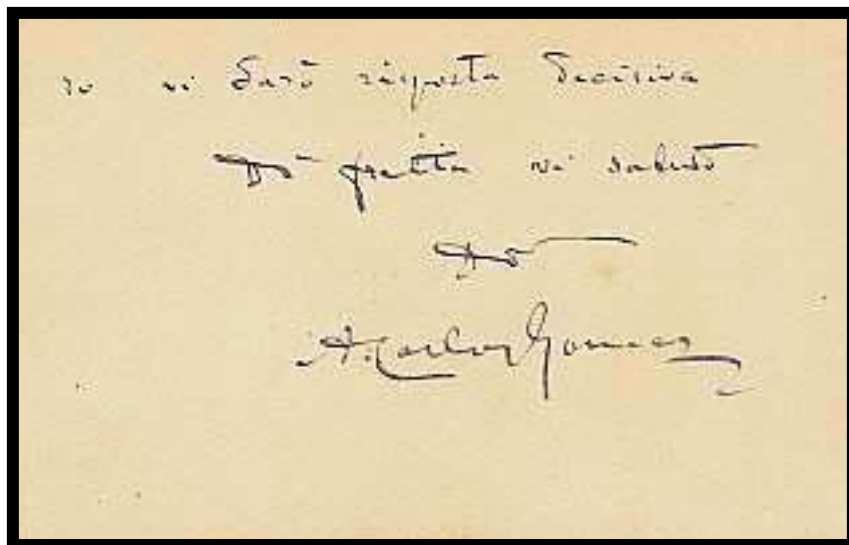 vi darò risposta decisiva
fretta vi saluto
A. Carlos Gomes